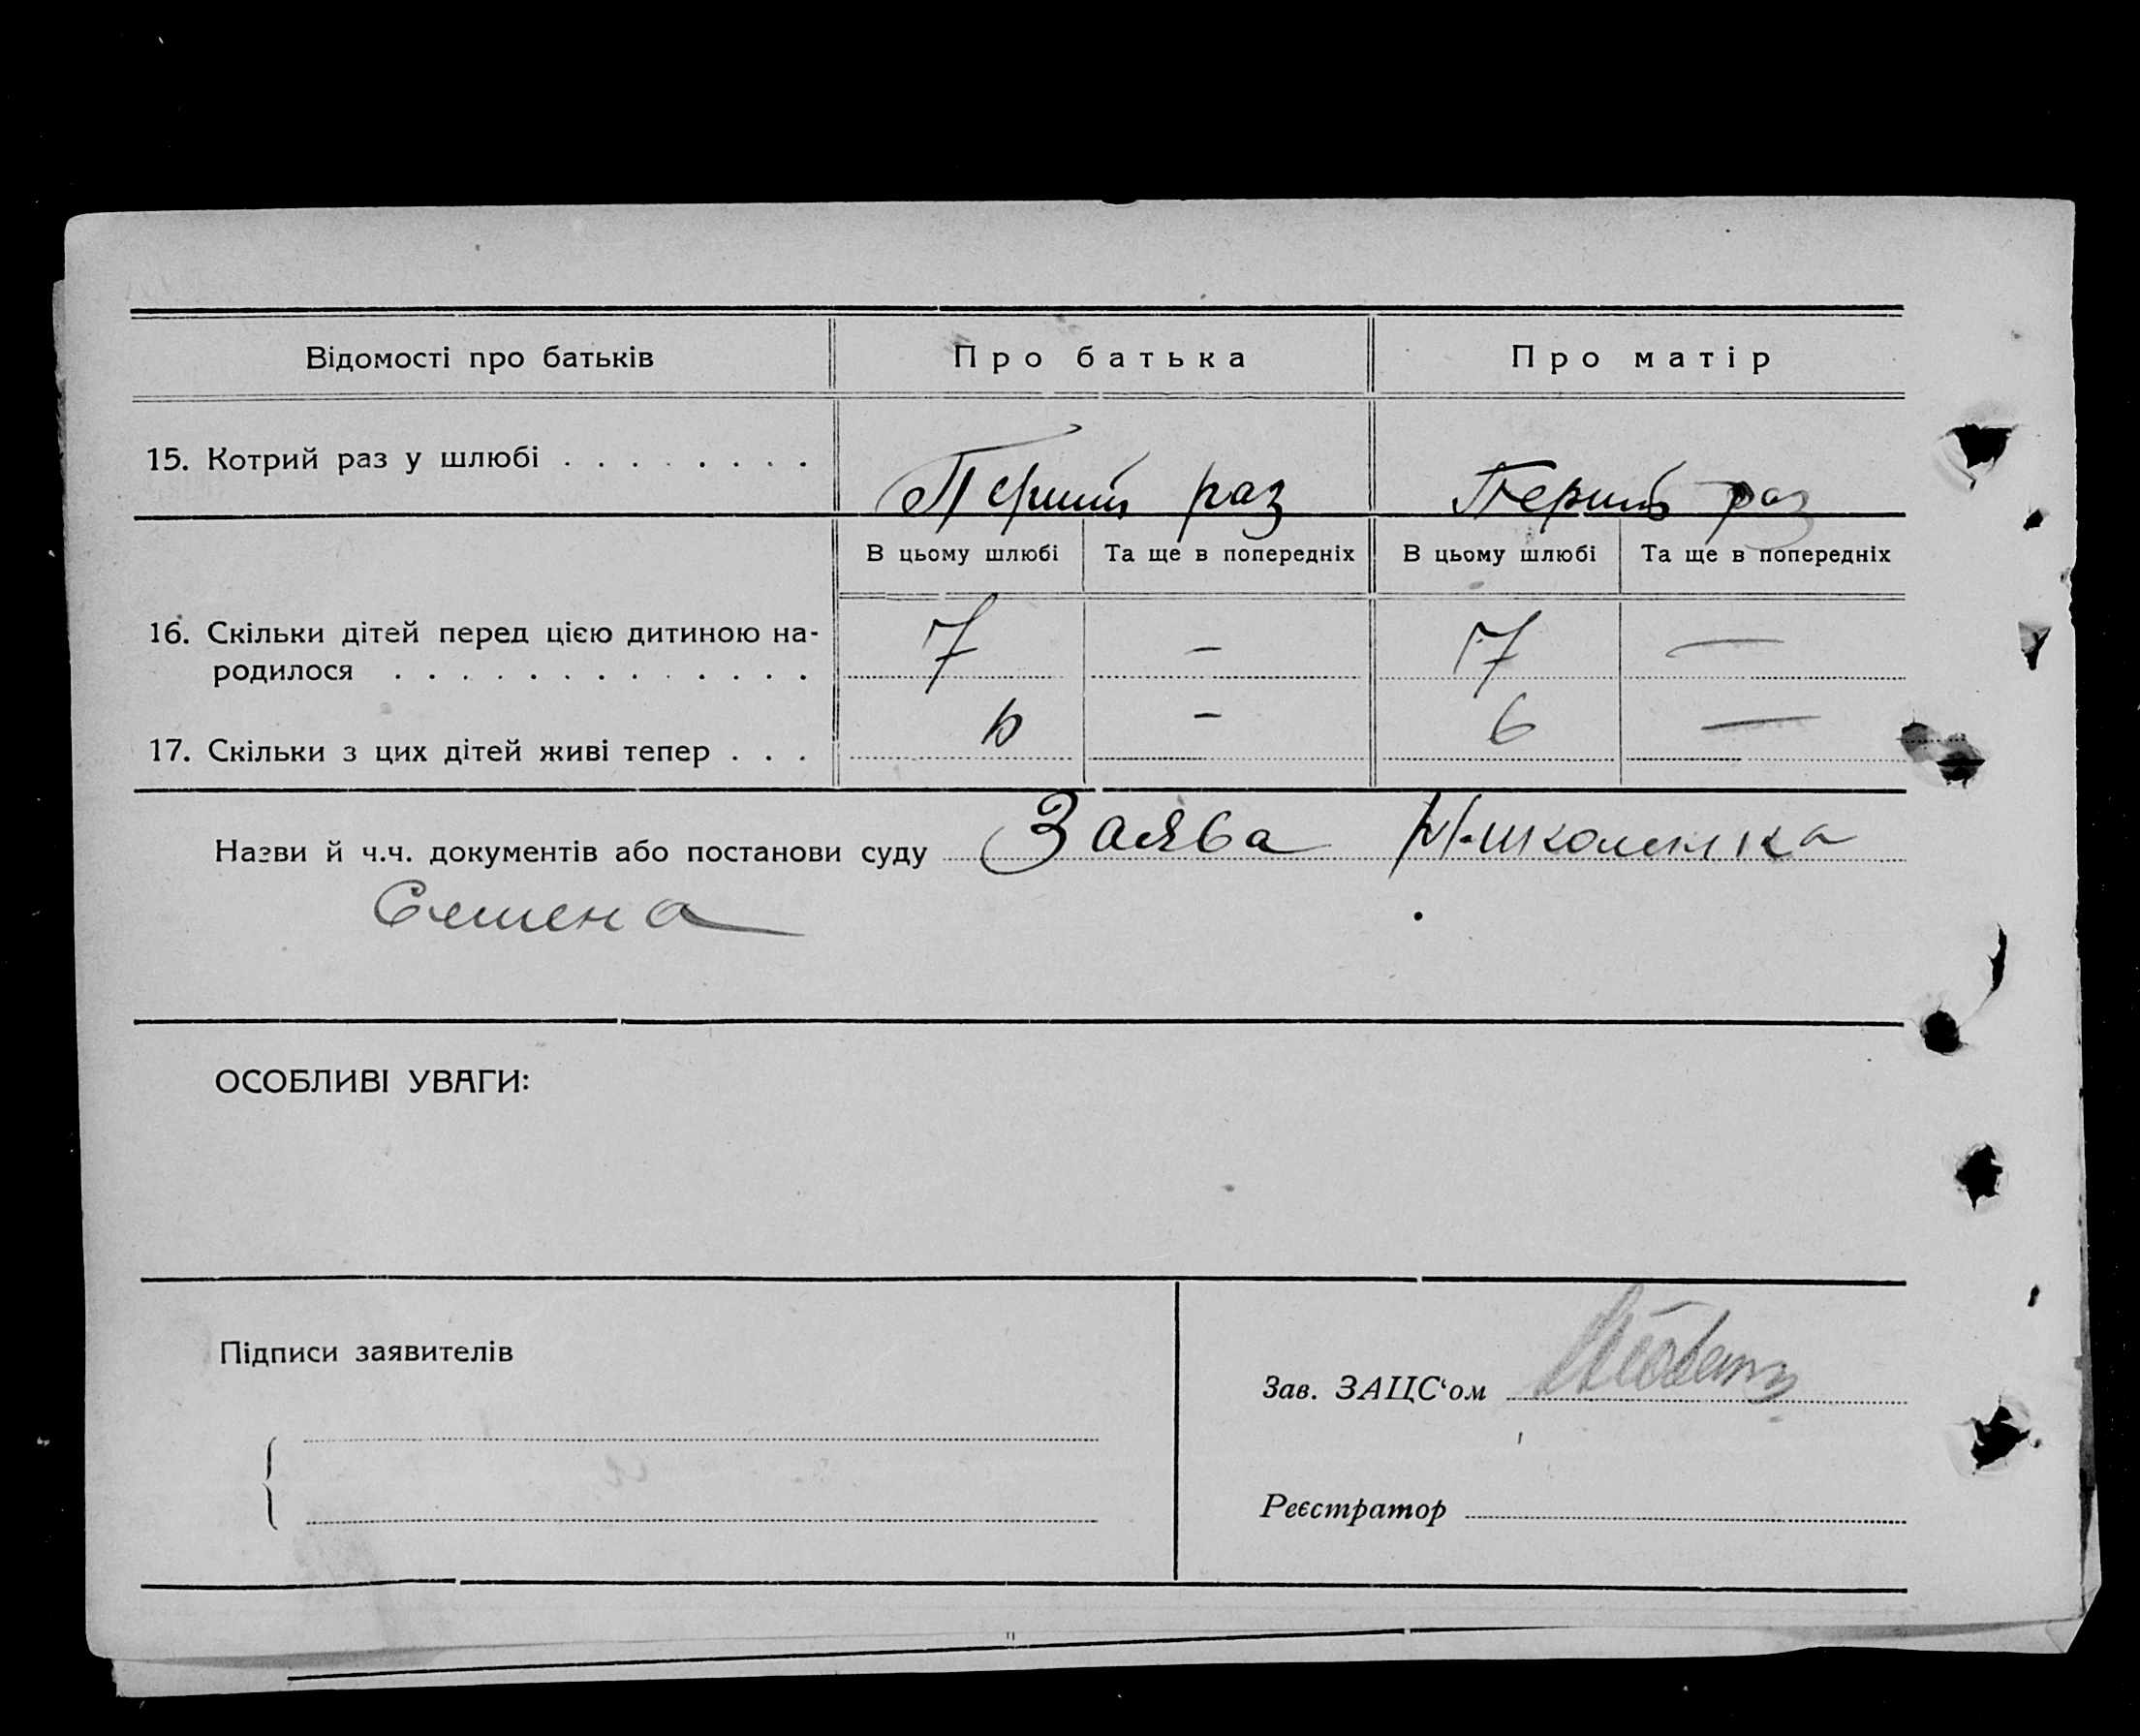 Відомості про батьків Про батька Про матір
15. Котрий раз у шлюбі . . . . . . . . Перший раз Перший раз
В цьому шлюбі Та ще в попередніх В цьому шлюбі Та ще в попередніх
16. Скільки дітей перед цією дитиною на-
родилося . . . . . . . . . . . . . 7 – 7 —
17. Скільки з цих дітей живі тепер . . . 6 – 6 —
Назви й ч.ч. документів або постанови суду Заява
Семена
ОСОБЛИВІ УВАГИ:
Підписи заявителів
Зав. ЗАЦС‘ом
Реєстратор